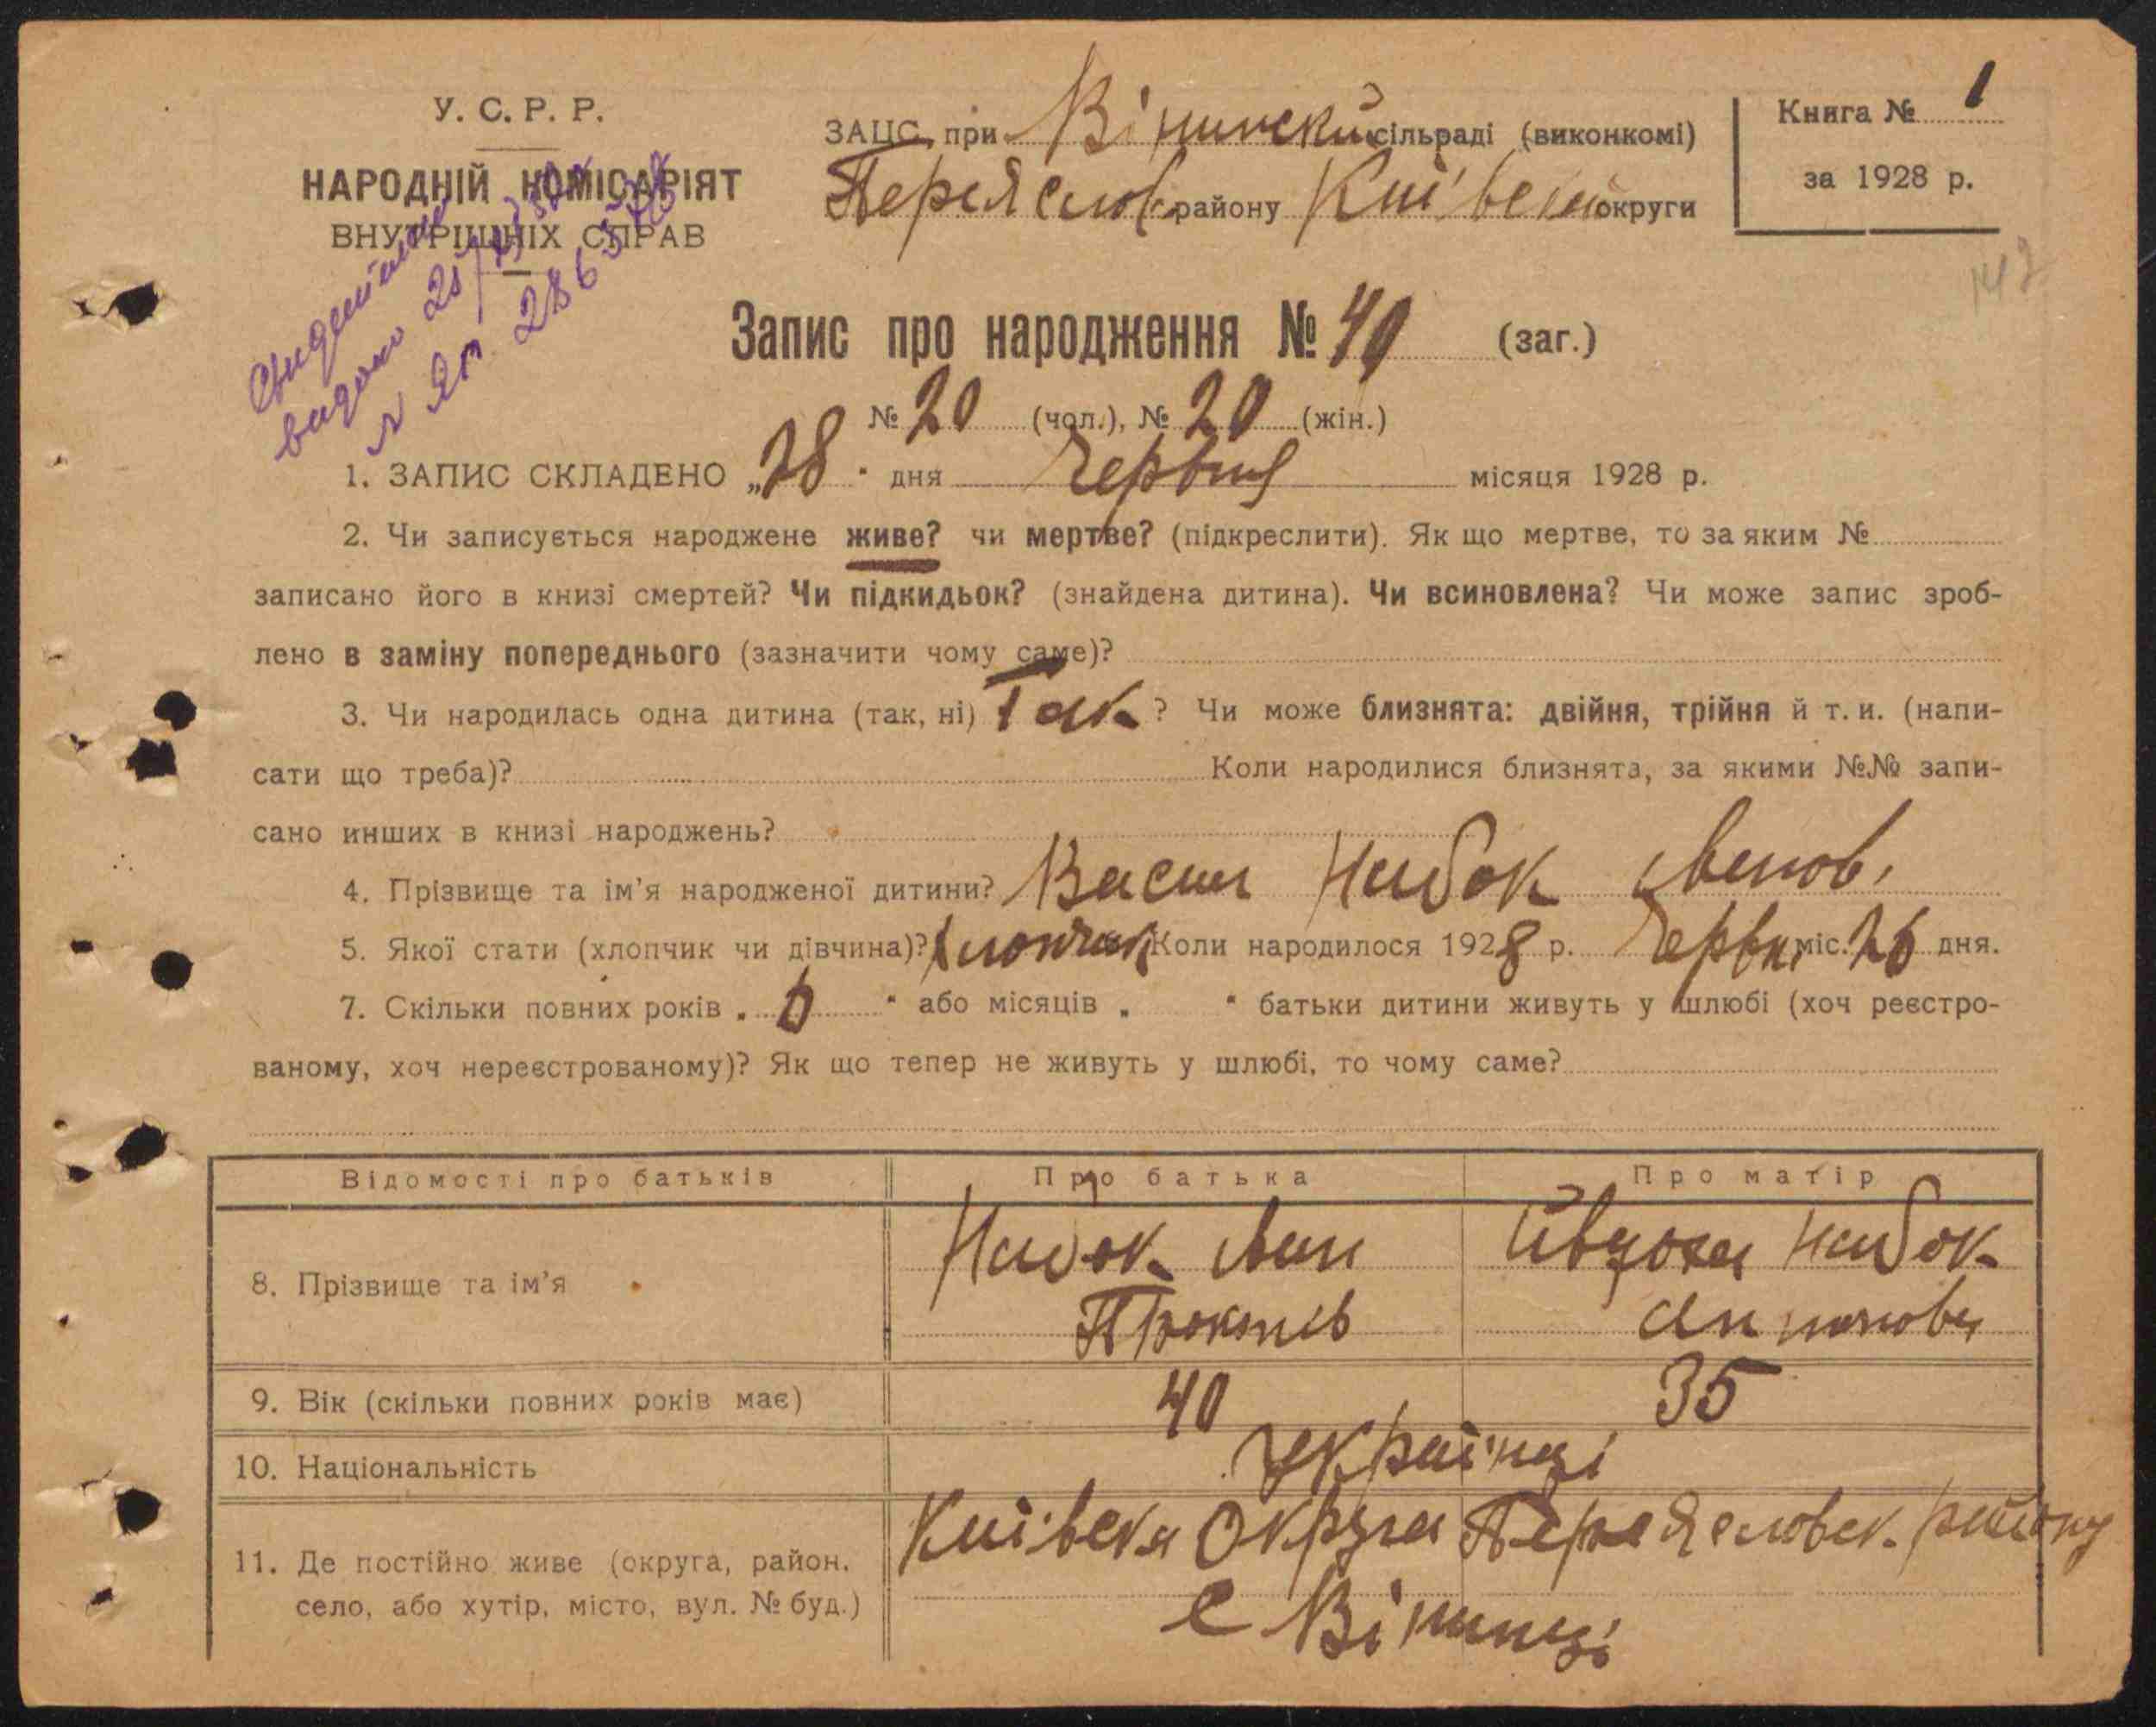 У. С. Р. Р.
НАРОДНІЙ КОМІСАРІЯТ
ВНУТРІШНІХ СПРАВ
ЗАЦС при Вінинській сільраді (виконкомі)
Переяслов району Київської округи
Книга № 1
за 1928 р.
142
видано
286
Запис про народження № 40 (заг.)
№ 20 (чол.), № 20 (жін.)
1. ЗАПИС СКЛАДЕНО „28" дня Червня місяця 1928 р.
2. Чи записується народжене живе? чи мертве? (підкреслити). Як що мертве, то за яким №
записано його в книзі смертей? Чи підкидьок? (знайдена дитина). Чи всиновлена? Чи може запис зроб-
лено в заміну попереднього (зазначити чому саме)?
3. Чи народилась одна дитина (так, ні) Так? Чи може близнята: двійня, трійня й т. и. (напи-
сати що треба)? Коли народилися близнята, за якими №№ запи-
сано инших в книзі народжень?
4. Прізвище та ім’я народженої дитини? Васил Набок Іванов.
5. Якої стати (хлопчик чи дівчина)? Хлопчик Коли народилося 1928 р. Червн міс. 26 дня.
7. Скільки повних років „ 6 " або місяців „ " батьки дитини живуть у шлюбі (хоч реєстро-
ваному, хоч нереєстрованому)? Як що тепер не живуть у шлюбі, то чому саме?
Відомості про батьків Про батька Про матір
8. Прізвище та ім’я Набок Іван Явдоха Набок
Прокопів Антонова
9. Вік (скільки повних років має) 40 35
10. Національність Українці
11. Де постійно живе (округа, район, Київска Округа Переясловск. району
село, або хутір, місто, вул. № буд.) с Вінинці